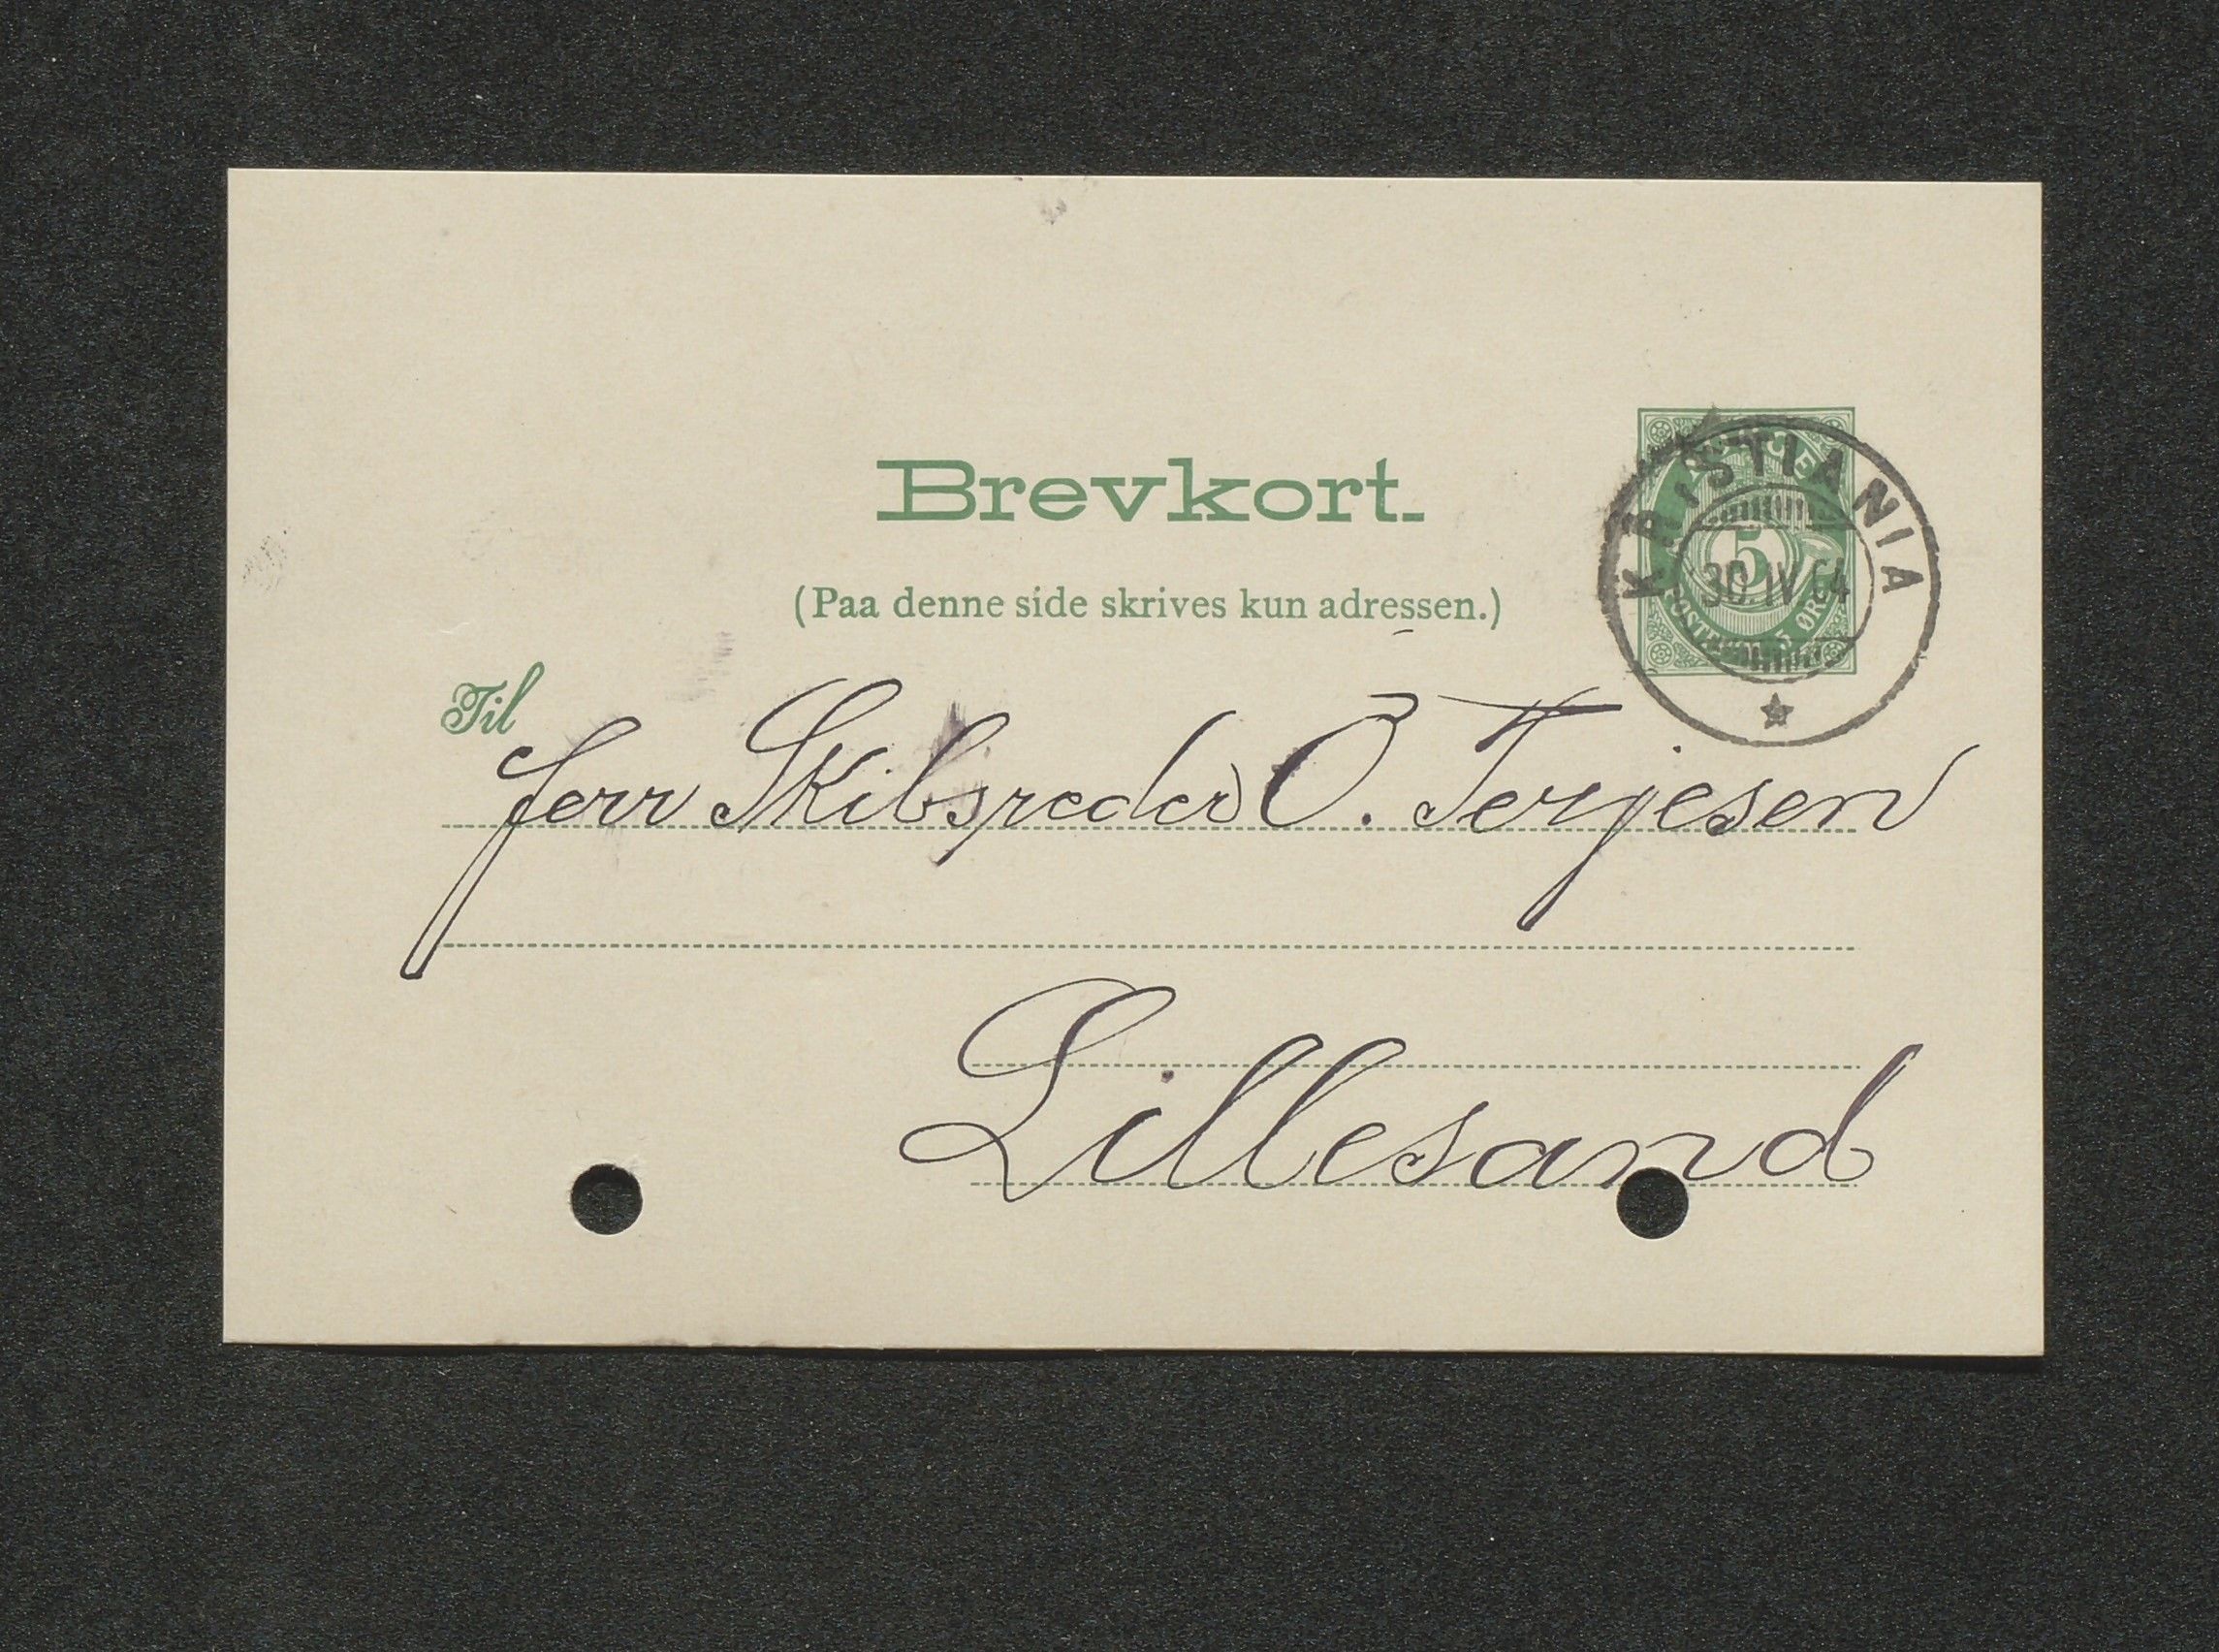 Brevkort.
(Paa denne side skrives kun adressen.)
KRISTIANIA
5
30 IV 04
POSTFRIM 5 ØRE
Til
Herr Skibsreder O. Terjesen
Lillesand